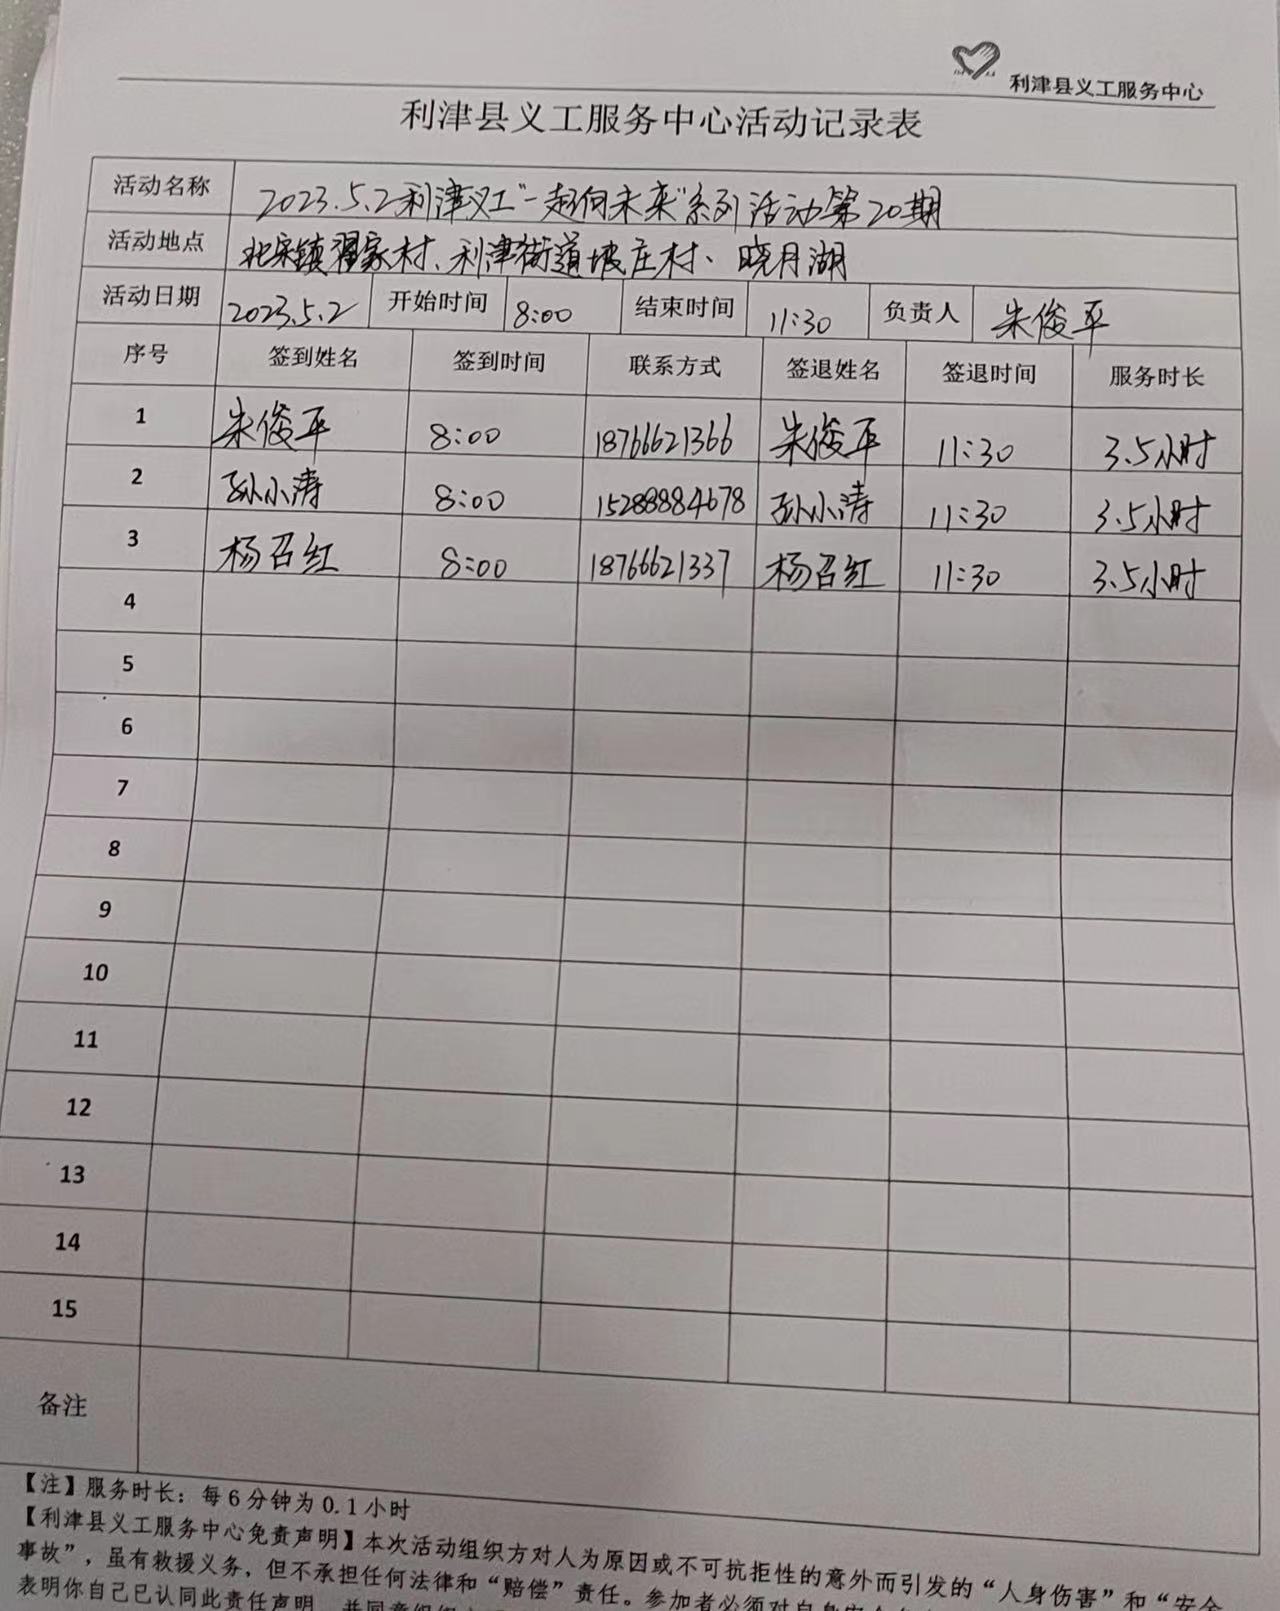 利津县义工服务中心
利津县义工服务中心活动记录表
活动名称 2023.5.2利津义工“一起向未来”系列活动第20期
活动地点 北宋镇 家村、利津街道坡庄村、晓月湖
活动日期 2023.5.2 开始时间 8:00 结束时间 11:30 负责人 朱俊平
序号 签到姓名 签到时间 联系方式 签退姓名 签退时间 服务时长
1 朱俊平 8:00 18766621366 朱俊平 11:30 3.5小时
2 孙小涛 8:00 15288884678 孙小涛 11:30 3.5小时
3 杨召红 8:00 18766621337 杨召红 11:30 3.5小时
4
5
6
7
8
9
10
11
12
13
14
15
备注
【注】服务时长：每6分钟为0.1小时
【利津县义工服务中心免责声明】本次活动组织方对人为原因或不可抗拒性的意外而引发的“人身伤害”和“安全
事故”，虽有救援义务，但不承担任何法律和“赔偿”责任。参加者必须对自身安全
表明你自己已认同此责任声明，并同意